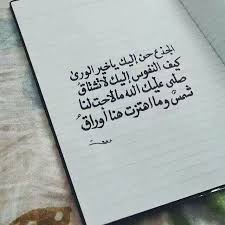 الجذع حن إليك يا خير الورى
كيف النفوس إليك لا تشتاقُ
صلى عليك الله ما لاحت لنا
شمسٌ وما اهتزت هنا أوراقُ